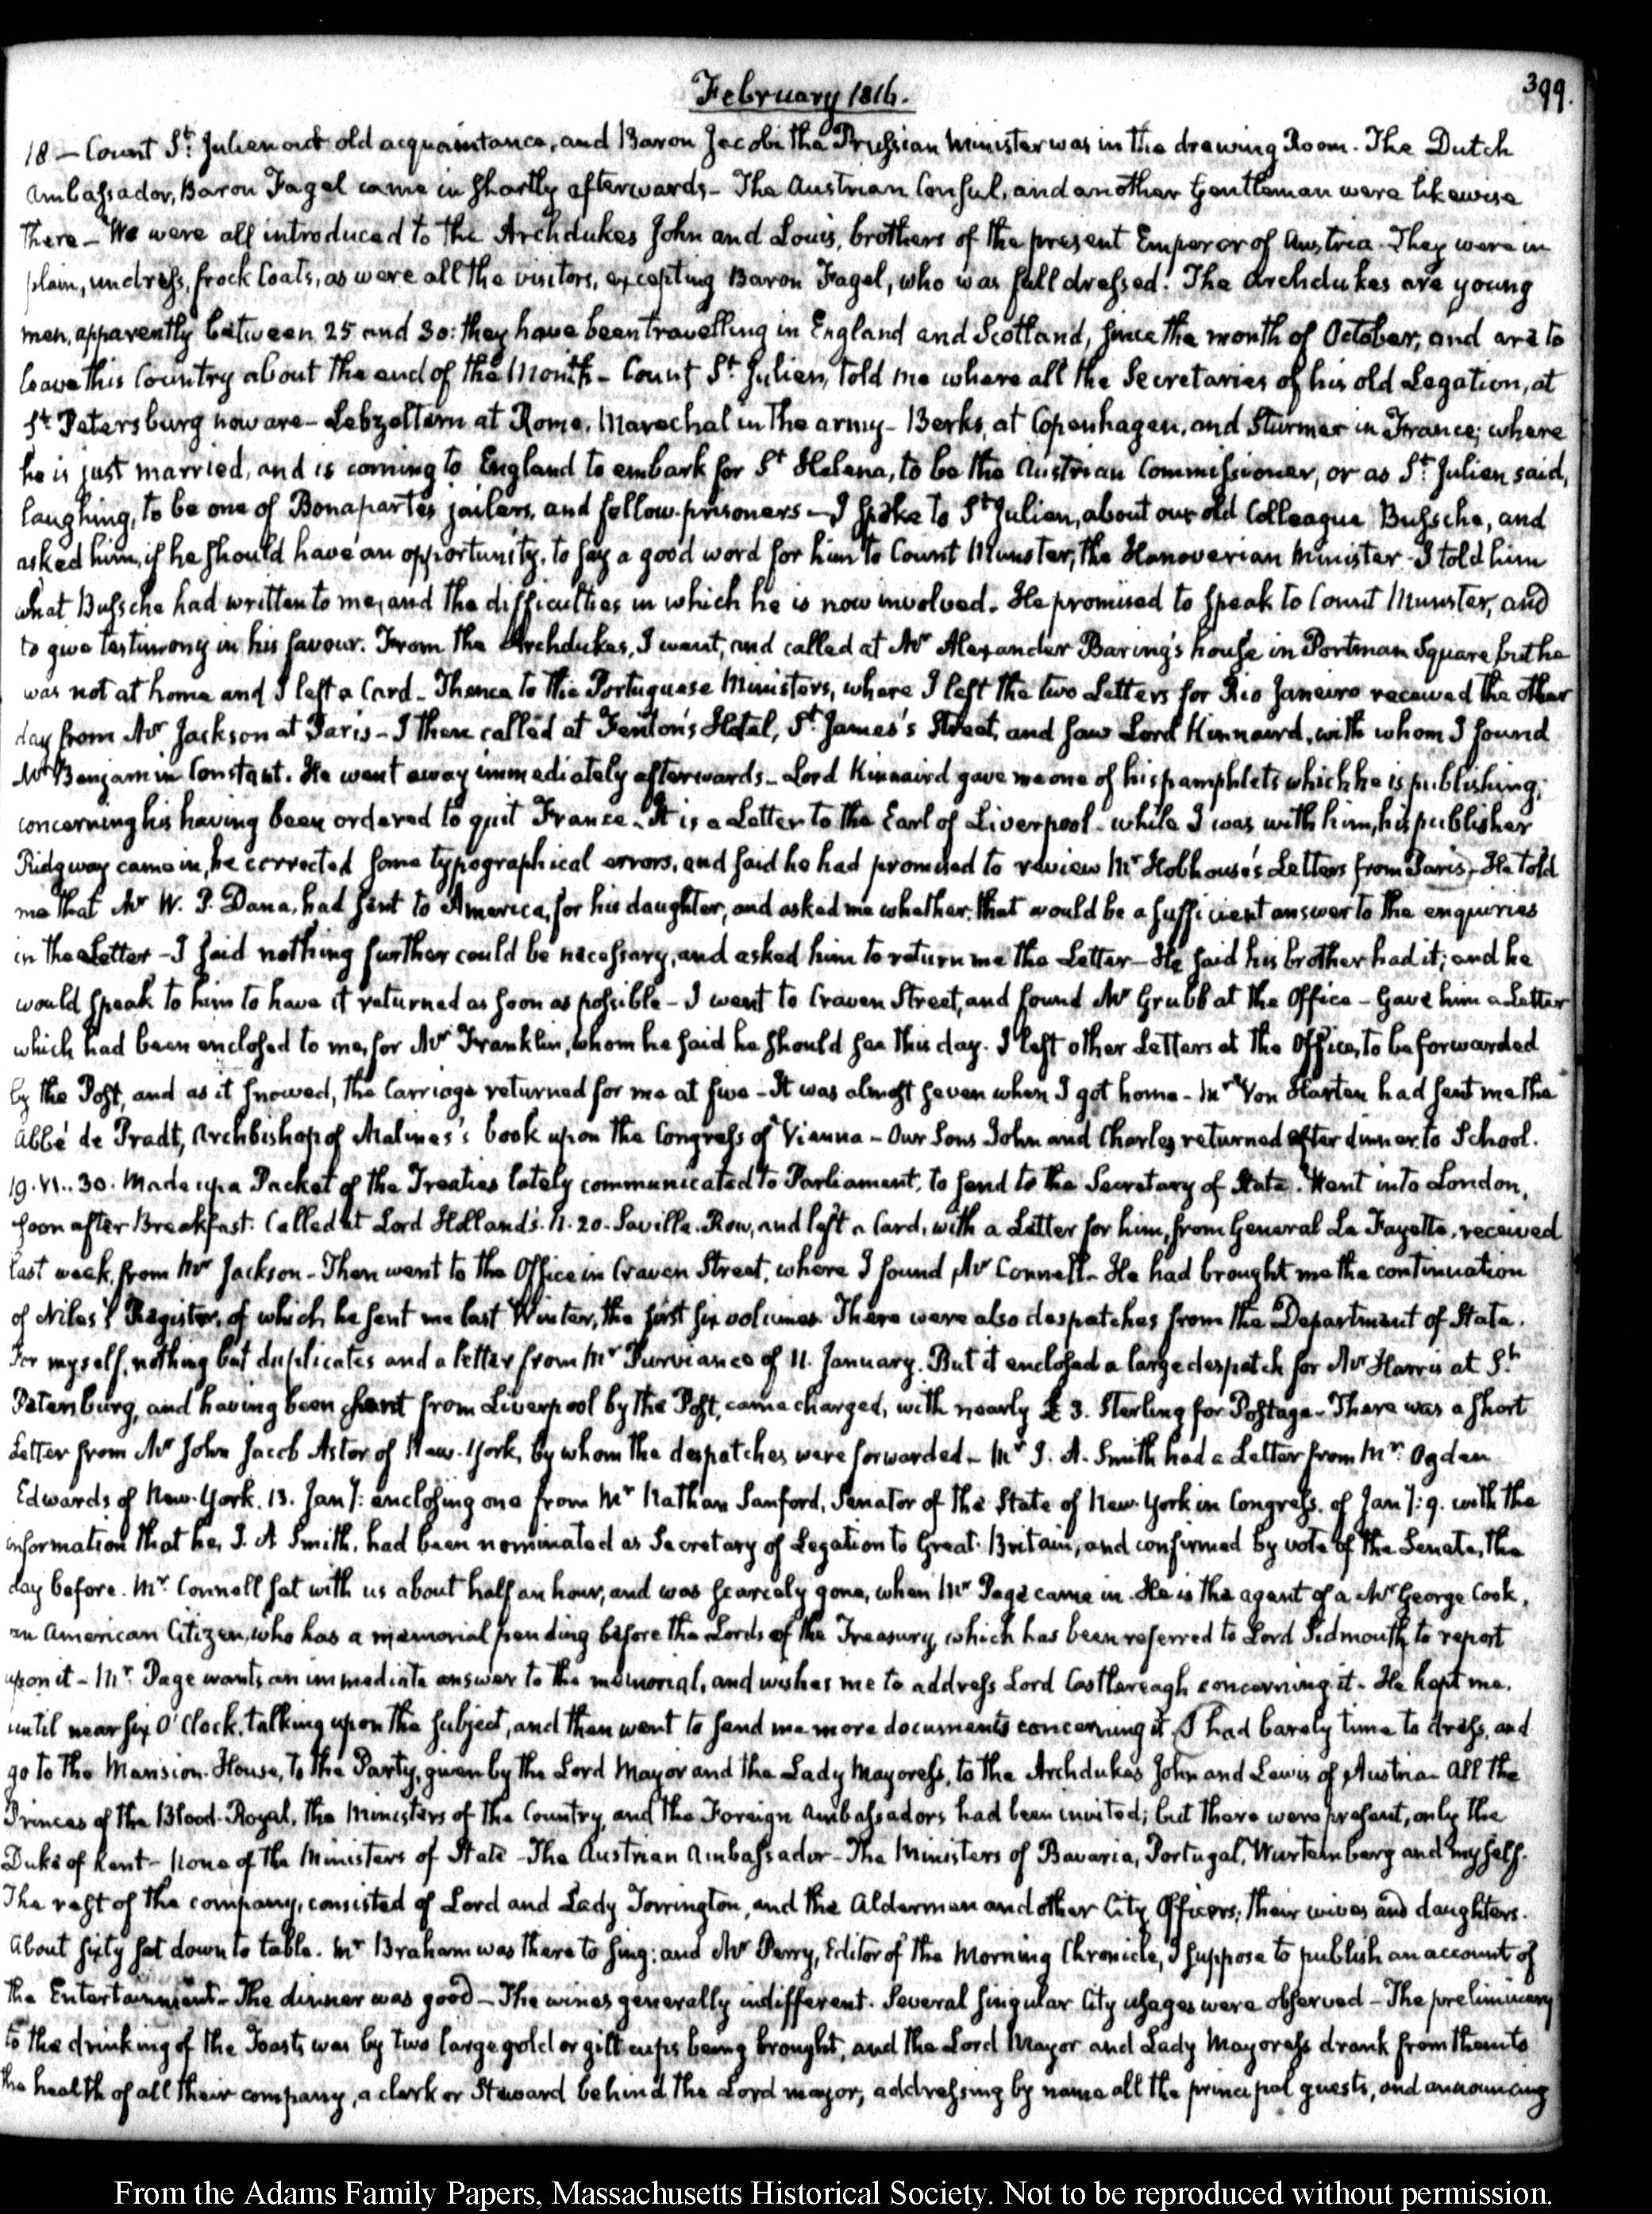 February 1816.
399.
18 – Count St. Julien our old acquaintance, and Baron Jacobi the Prussian Minister was in the drawing Room. The Dutch
Ambassador, Baron Fagel came in shortly afterwards – The Austrian Consul, and another Gentleman were likewise
there – We were all introduced to the Archdukes John and Louis, brothers of the present Emperor of Austria. They were in
plain, undress, frock Coats, as were all the visitors, excepting Baron Fagel, who was full dressed. The Archdukes are young
men, apparently between 25 and 30: they have been travelling in England and Scotland, since the month of October, and are to
leave this Country about the end of the Month – Count St. Julien, told me where all the Secretaries of his old Legation, at
St. Petersburg now are – Lebzeltern at Rome, Marechal in the army – Berks, at Copenhagen, and Sturmer in France; where
he is just married, and is coming to England to embark for St. Helena, to be the Austrian Commissioner, or as St. Julien said,
laughing, to be one of Bonaparte's jailers, and fellow-prisoners – I spoke to St. Julien, about our old Colleague Bussche, and
asked him, if he should have an opportunity, to say a good word for him to Count Munster, the Hanoverian Minister – I told him
what Bussche had written to me, and the difficulties in which he is now involved. He promised to speak to Count Munster, and
to give testimony in his favour. From the Archdukes, I went, and called at Mr. Alexander Baring's house in Portman Square but he
was not at home and I left a Card – Thence to the Portuguese Ministers, where I left the two Letters for Rio Janeiro received the other
day from Mr. Jackson at Paris – I then called at Fenton's Hotel, St. James's Street, and saw Lord Kinnaird, with whom I found
Mr. Benjamin Constant. He went away immediately afterwards – Lord Kinnaird gave me one of his pamphlets which he is publishing,
concerning his having been ordered to quit France – It is a Letter to the Earl of Liverpool – while I was with him, his publisher
Ridgway came in, he corrected some typographical errors, and said he had promised to review Mr. Hobhouse's Letters from Paris – He told
me that Mr. W. P. Dana, had sent to America, for his daughter, and asked me whether that would be a sufficient answer to the enquiries
in the Letter – I said nothing further could be necessary, and asked him to return me the Letter – He said his brother had it; and he
would speak to him to have it returned as soon as possible – I went to Craven Street, and found Mr. Grubb at the Office – Gave him a Letter
which had been enclosed to me, for Mr. Franklin, whom he said he should see this day. I left other Letters at the Office, to be forwarded
by the Post, and as it snowed, the Carriage returned for me at five – It was almost seven when I got home – Mr. Von Harten had sent me the
Abbé de Pradt, Archbishop of Malines's book upon the Congress of Vienna – Our Sons John and Charles returned after dinner to School.
19. VI..30. Made up a Packet of the Treaties lately communicated to Parliament, to send to the Secretary of State. Went into London,
soon after Breakfast. Called at Lord Holland's. N. 20. Saville Row, and left a Card, with a Letter for him, from General La Fayette, received
last week, from Mr. Jackson – Then went to the Office in Craven Street, where I found Mr. Connell – He had brought me the continuation
of Niles's Register, of which he sent me last Winter, the first six volumes. There were also despatches from the Department of State.
For myself, nothing but duplicates and a letter from Mr. Purviance of 11. January. But it enclosed a large despatch for Mr. Harris at St.
Petersburg, and having been sent from Liverpool by the Post, came charged, with nearly £3. Sterling for Postage – There was a short
Letter from Mr. John Jacob Astor of New-York, by whom the despatches were forwarded – Mr. J. A. Smith had a Letter from Mr. Ogden
Edwards of New-York. 13. Jany: enclosing one from Mr. Nathan Sanford, Senator of the State of New York in Congress, of Jany: 9. with the
information that he, J. A Smith, had been nominated as Secretary of Legation to Great-Britain, and confirmed by vote of the Senate, the
day before. Mr. Connell sat with us about half an hour, and was scarcely gone, when Mr. Page came in. He is the agent of a Mr. George Cook,
an American Citizen, who has a memorial pending before the Lords of the Treasury, which has been referred to Lord Sidmouth, to report
upon it – Mr. Page wants an immediate answer to the memorial, and wishes me to address Lord Castlereagh concerning it – He kept me,
until near six O'Clock, talking upon the subject, and then went to send me more documents concerning it. I had barely time to dress, and
go to the Mansion-House, to the Party, given by the Lord Mayor and the Lady Mayoress, to the Archdukes John and Lewis of Austria – All the
Princes of the Blood-Royal, the Ministers of the Country, and the Foreign Ambassadors had been invited; but there were present, only the
Duke of Kent – None of the Ministers of State – The Austrian Ambassador – The Ministers of Bavaria, Portugal, Wurtemberg and myself.
The rest of the company, consisted of Lord and Lady Torrington, and the Aldermen and other City Officers; their wives and daughters.
About sixty sat down to table. Mr. Braham was there to sing: and Mr. Perry, Editor of the Morning Chronicle, I suppose to publish an account of
the Entertainment – The dinner was good – The wines generally indifferent. Several singular City usages were observed – The preliminary
to the drinking of the Toasts was by two large gold or gilt cups being brought, and the Lord Mayor and Lady Mayoress drank from them to
the health of all their company, a clerk or Steward behind the Lord mayor, addressing by name all the principal guests, and announcing
From the Adams Family Papers, Massachusetts Historical Society. Not to be reproduced without permission.